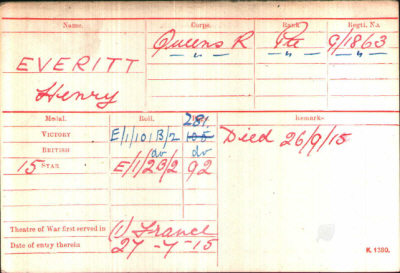 Name. Corps. Rank Regtl. No.
EVERITT Queens R Pte G/1863
Henry " " "
Medal. Roll. Page. Remarks.
VICTORY E/1/101B/2 281. 105 Died 26/9/15
BRITISH do do
15 STAR E/1/2B/2 92
Theatre of War first served in (1) France
Date of entry therein 27-7-15
K. 1380.